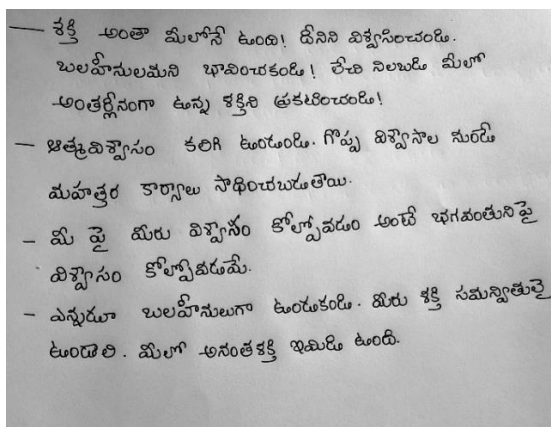 — శక్తి అంతా మీలోనే ఉంది! దీనిని విశ్వసించండి.
బలహీనులమని భావించకండి! లేచి నిలబడి మీలో
అంతర్లీనంగా ఉన్న శక్తిని ప్రకటించండి!
— ఆత్మవిశ్వాసం కలిగి ఉండండి. గొప్ప విశ్వాసాల నుండే
మహత్తర కార్యాలు సాధించబడుతాయి.
– మీ పై మీరు విశ్వాసం కోల్పోవడం అంటే భగవంతునిపై
విశ్వాసం కోల్పోవడమే.
– ఎన్నడూ బలహీనులుగా ఉండకండి. మీరు శక్తి సమన్వితులై
ఉండాలి. మీలో అనంతశక్తి ఇమిడి ఉంది.